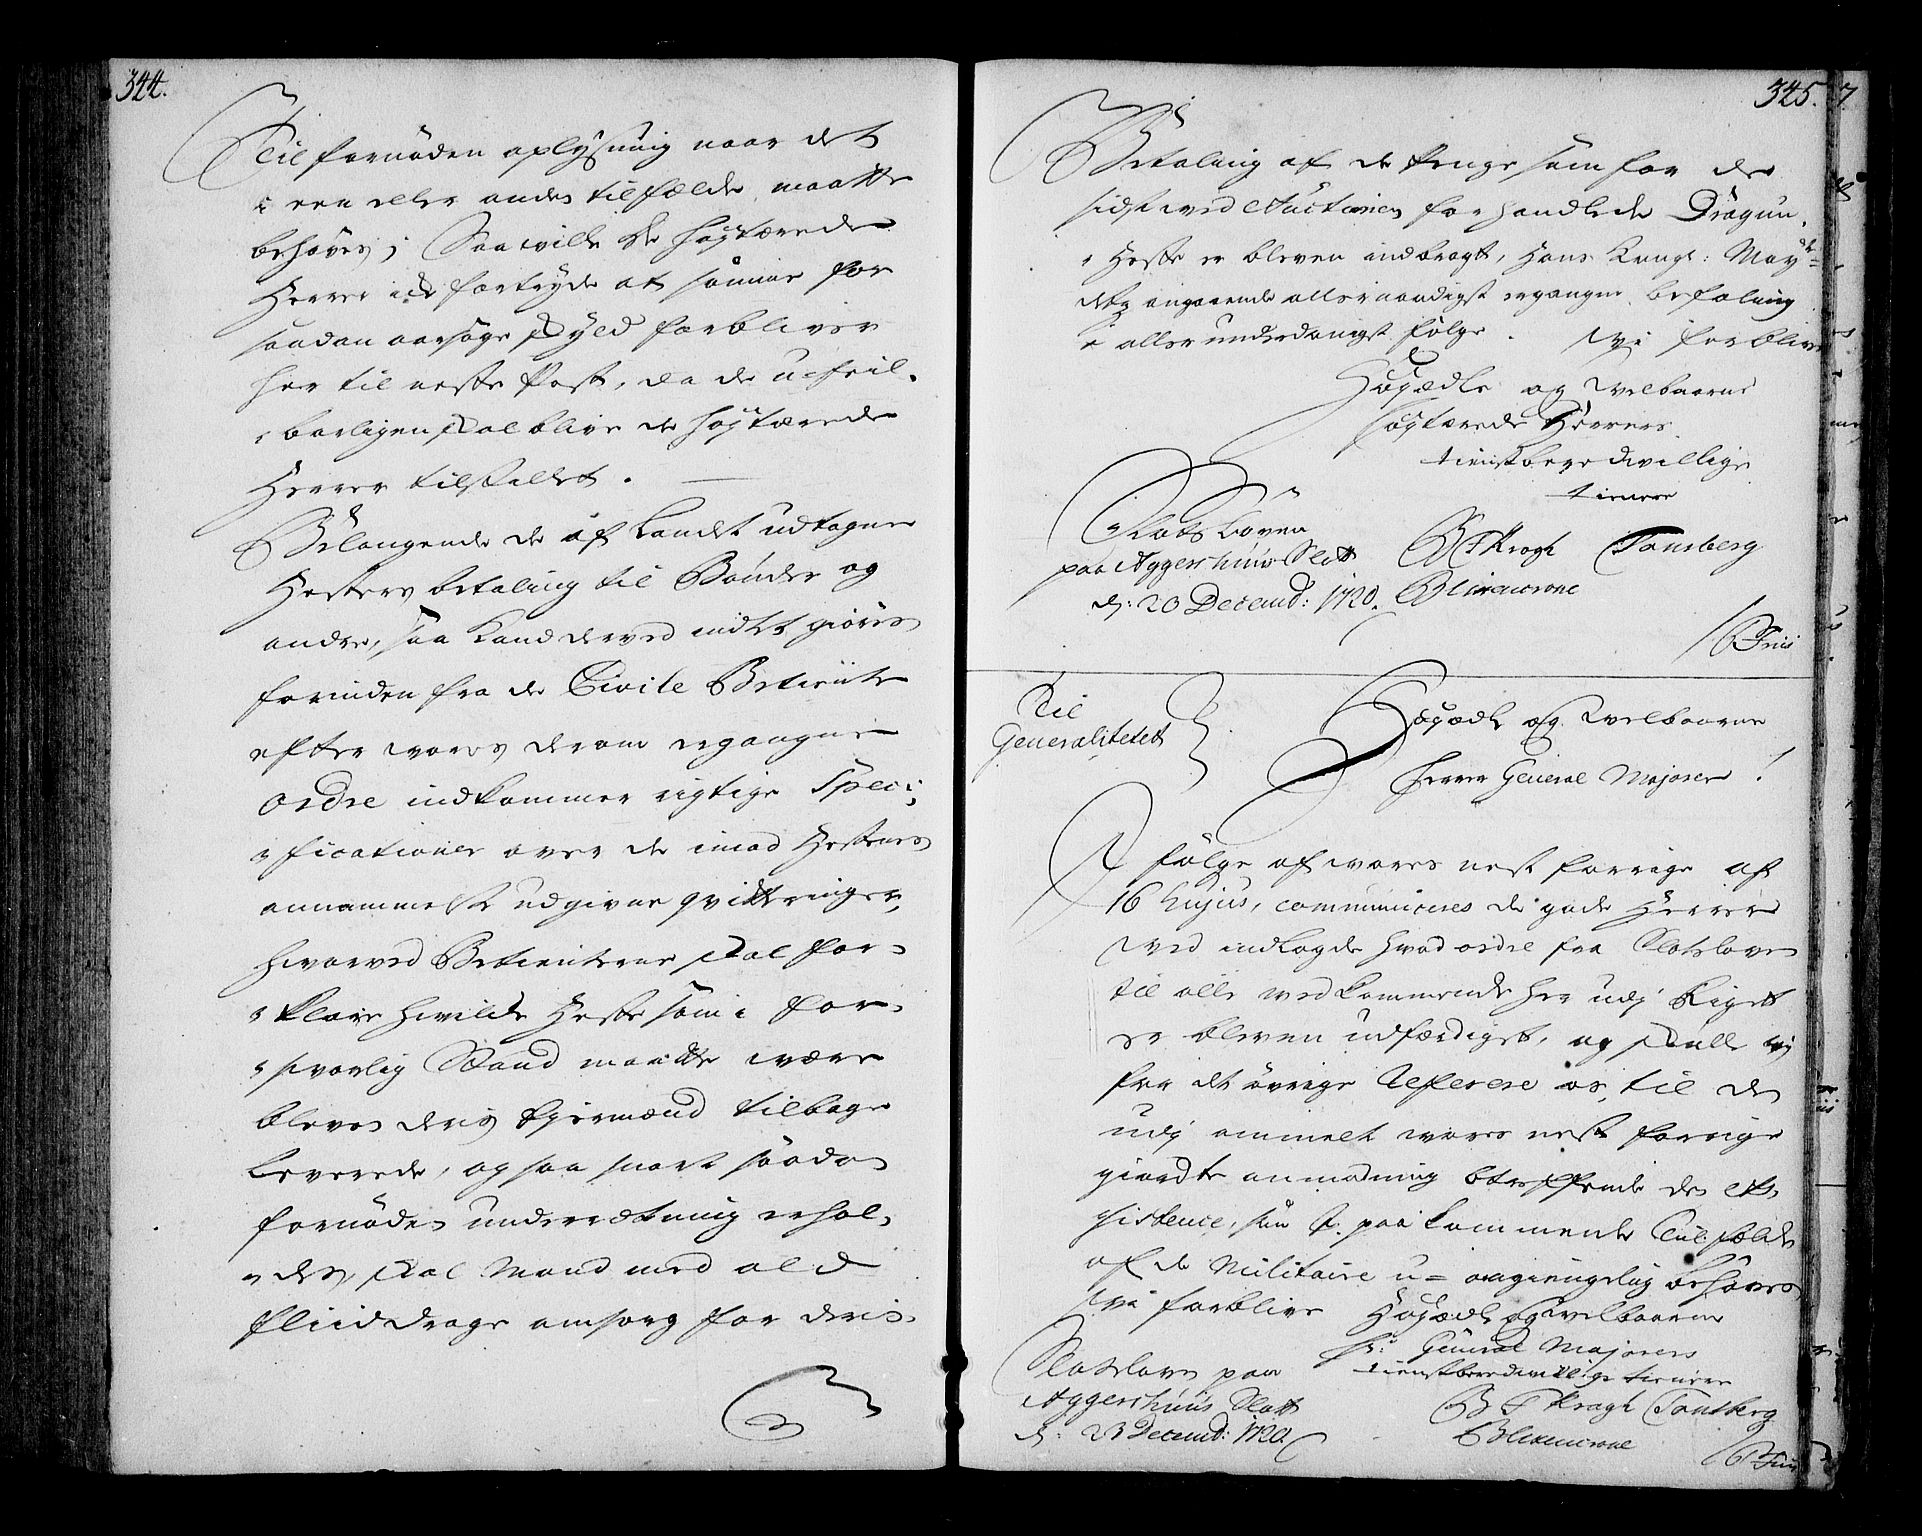 344.
Til fornøden oplysning naar det
i een eller anden tilfælde maatte
behøves; Saa wille de høytærede
Herrer icke fortryde at samme for
saadan aarsage skyld forbliver
her til neste Post, da de ufeil-
barligen skal blive de høytærede
Herrer tilstillet.
Belangende de af Landet udtagne
Hesters betaling til Bønder og
andre, saa kand derved indtet giøres
forinden fra de Civile Betiente
efter wores derom ergangne
Ordre indkommer rigtige Speci-
ficationer over de imod Hestenes
annammelse udgivne qvitteringer,
hvorved Betienterne skal for-
klare hvilke Heste som i for-
svarlig Stand maatte være
bleven deris Ejermænd tilbage
leverede, og saa snart saadan
fornøden underretning erhol-
des, skal Mand med ald
fliid drage omsorg for deris
345.
Betaling af de Penge som for de
sidst ved Auctionen forhandlede Dragun-
Heste er bleven indbragt, Hans Kongl: Mayts
dets angaaende allernaadigst ergangne befaling
i allerunderdanigst følge. Wi forblive
Høyædle og Welbaarne
høytærede Herrers
tienstberedwillige
tienere
Slots Loven
paa Aggershuus Slott
d: 20 Decemb: 1720.
BF Kragh Tonsberg
Blixencrone
Friis
Til
Generalitetet
Høyædle og Welbaarne
Herrer General Majorer!
I følge af wores nest forrige af
16 hujus, communiceres de gode Herrer
ved indlagde hvad ordre fra Slotsloven
til alle vedkommende her udj Riget
er bleven udfærdiget, og skulle wj
for det øvrige referere os til den
udj ommelt wores nest forrige
giorde anmodning betreffende den as-
sistence, som paa kommende Tilfælde
af de Militaire u-omgiengelig behøves
Wi forblive Høyædle og Welbaarne
Hr: General Majorers
tienstberedwillige tienere
Slotsloven paa
Aggershuus Slott
d: 23 Decemb: 1720.
BF Kragh Tonsberg
Blixencrone
Friis